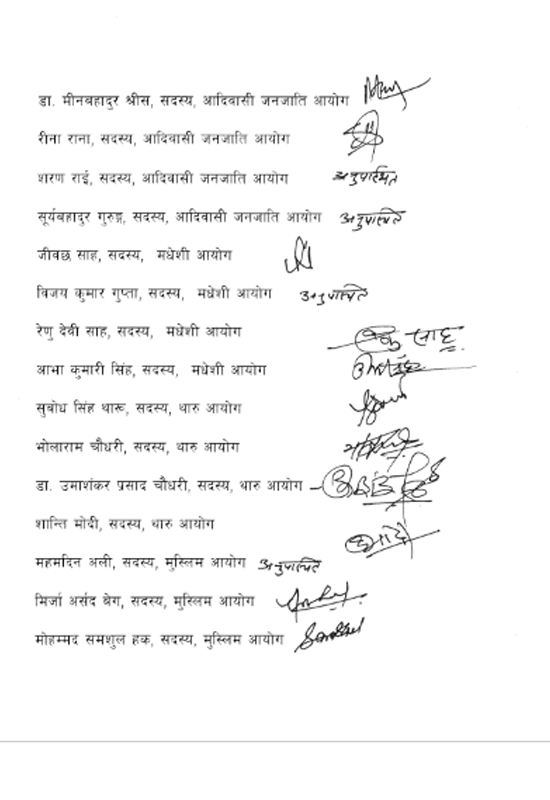 डा. मीनबहादुर श्रीस, सदस्य, आदिवासी जनजाति आयोग
रीना राना, सदस्य, आदिवासी जनजाति आयोग
शरण राई, सदस्य, आदिवासी जनजाति आयोग अनुपस्थित
सूर्यबहादुर गुरुङ्ग, सदस्य, आदिवासी जनजाति आयोग अनुपस्थित
जीवछ साह, सदस्य, मधेशी आयोग
विजय कुमार गुप्ता, सदस्य, मधेशी आयोग अनुपस्थित
रेणु देवी साह, सदस्य, मधेशी आयोग साह
आभा कुमारी सिंह, सदस्य, मधेशी आयोग
सुबोध सिंह थारू, सदस्य, थारु आयोग
भोलाराम चौधरी, सदस्य, थारु आयोग
डा. उमाशंकर प्रसाद चौधरी, सदस्य, थारु आयोग
शान्ति मोदी, सदस्य, थारु आयोग
महमदिन अली, सदस्य, मुस्लिम आयोग अनुपस्थित
मिर्जा अर्सद बेग, सदस्य, मुस्लिम आयोग
मोहम्मद समशुल हक, सदस्य, मुस्लिम आयोग